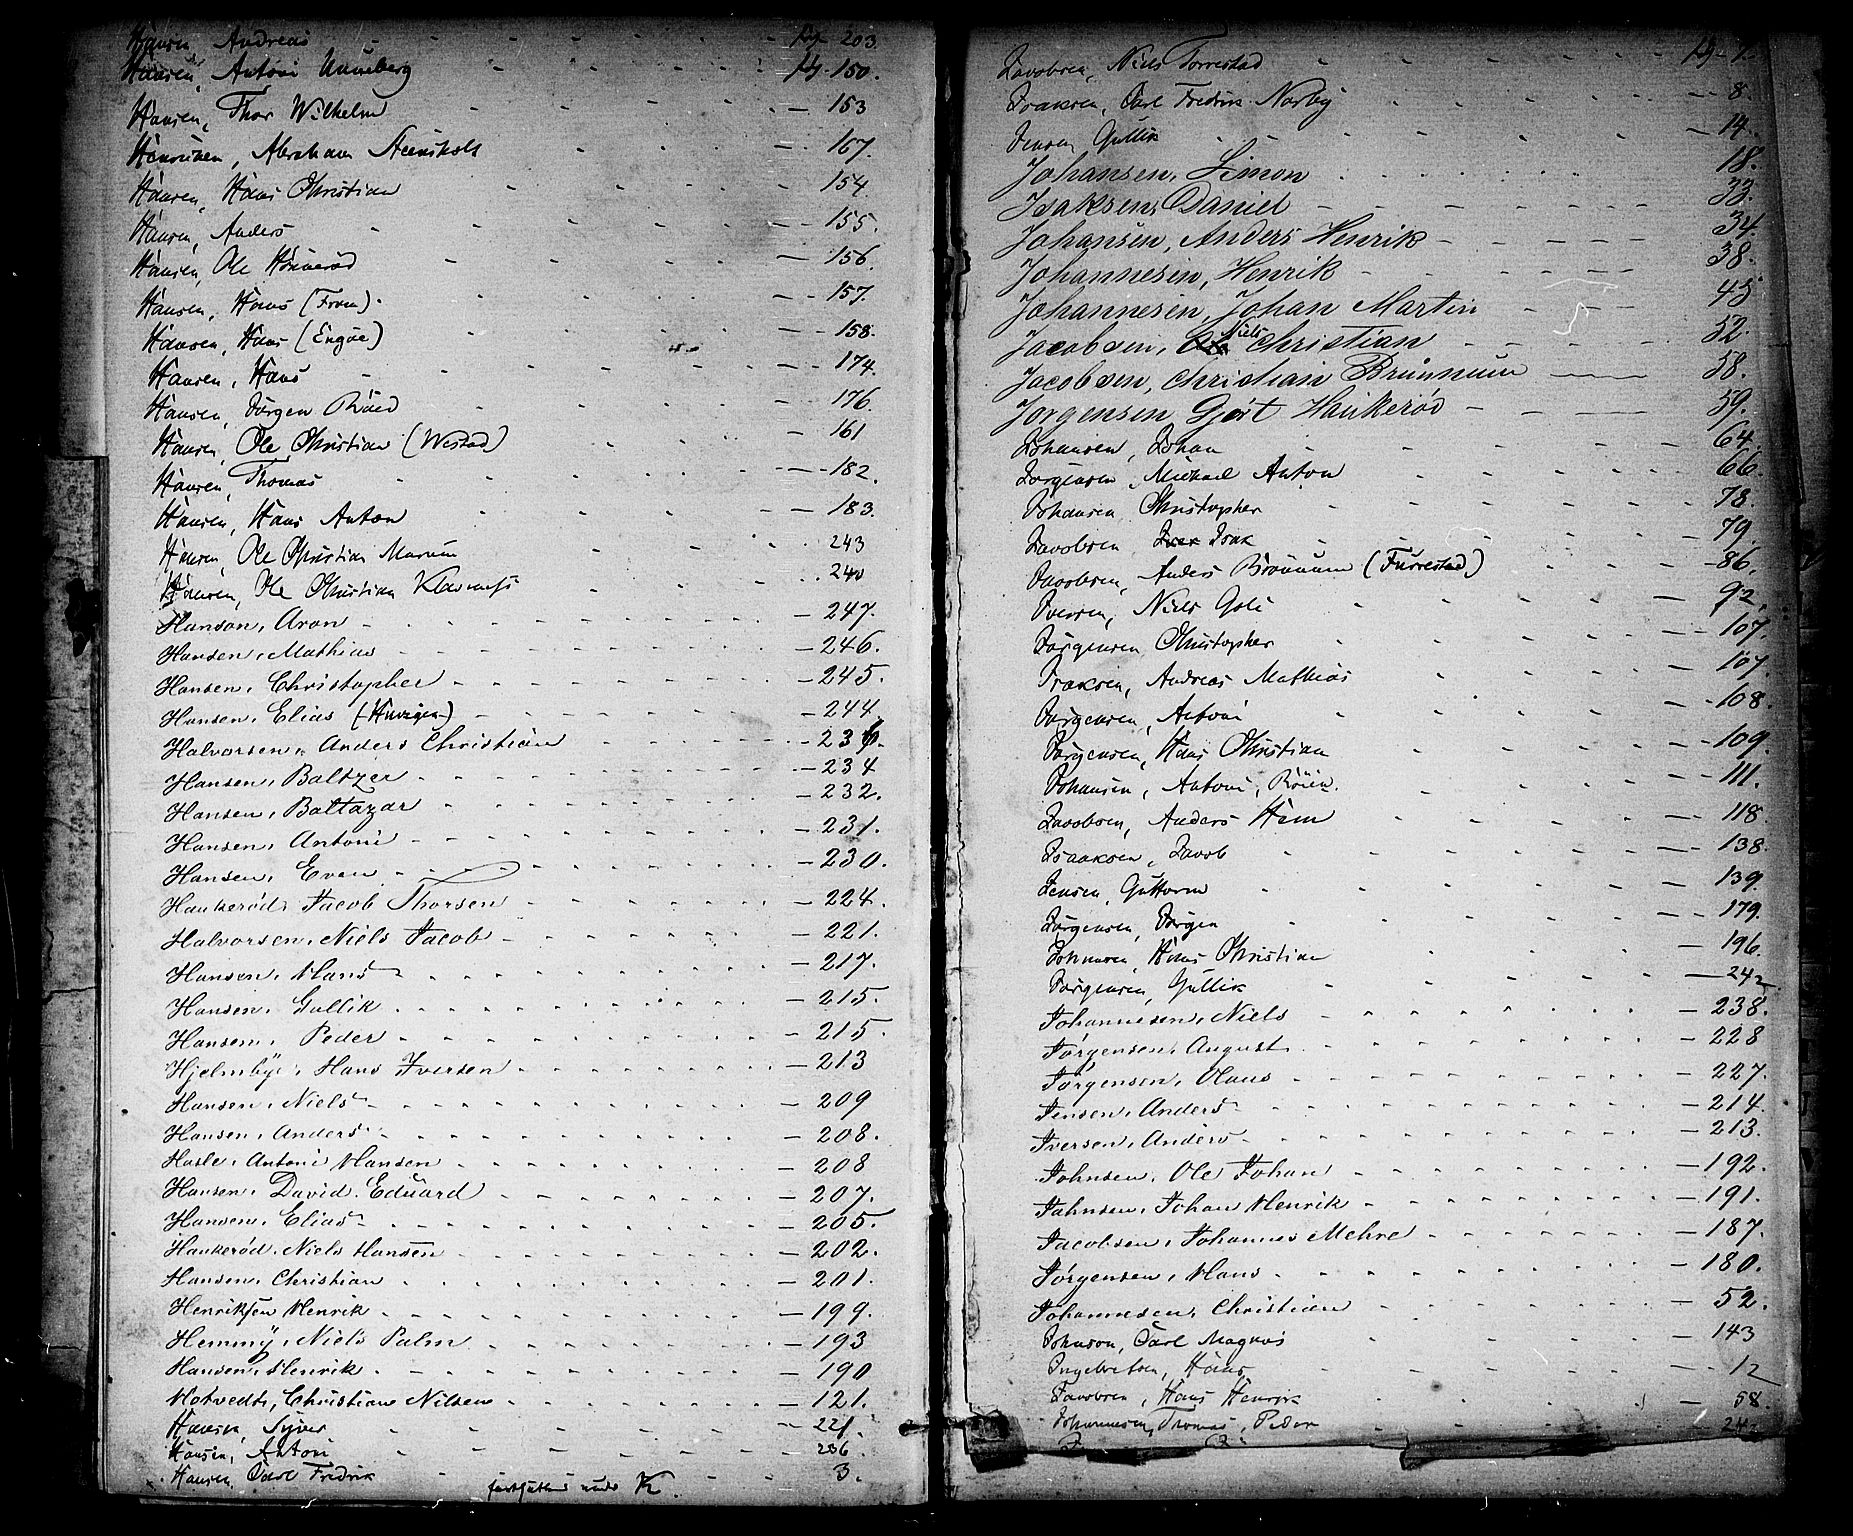 Hansen, Andreas - pg. 203.
Hansen, Antoni Unneberg - pg. 150.
Hansen, Thor Wilhelm - 153
Henriksen, Abraham - 167.
Hansen, Hans Christian - 154.
Hansen, Anders - 155.
Hansen, Ole - 156.
Hansen, Hans (Fron). - 157.
Hansen, Hans (Engøe) - 158.
Hansen, Hans - 174.
Hansen, Jørgen - 176.
Hansen, Ole Christian (Westad) - 161
Hansen, Thomas - 182.
Hansen, Hans Anton - 183.
Hansen, Ole Christian Marum - 243
Hansen, Ole Christian - 240
Hanson, Aron - 247.
Hansen, Mathias - 246.
Hansen, Christopher - 245.
Hansen, Elias - 244.
Halvorsen, Anders Christian - 236.
Hansen, Baltzer - 234
Hansen, Baltazar - 232.
Hansen, Antoni - 231.
Hansen, Even - 230.
Haukerød, Jacob Thorsen - 224.
Halvorsen, Niels Jacob - 221.
Hansen, Hans - 217.
Hansen, Gullik - 215.
Hansen, Peder - 215.
Hjelmbye, Hans Iversen - 213
Hansen, Niels - 209
Hansen, Anders - 208.
Hasle, Antoni Hansen - 208
Hansen, David Eduard - 207.
Hansen, Elias - 205.
Haukerød, Niels Hansen - 202.
Hansen, Christian - 201.
Henriksen Henrik - 199.
Hemmy, Niels Palm - 193
Hansen, Henrik - 190
Hotvedt, Christian Nilsen - 121.
Hansen, Syver - 221.
Hansen, Anton - 236.
Hansen, Carl Fredrik - 3.
K.
Jacobsen, Niels Torrestad - pg. 7.
Isaksen, Carl Fredrik Norby - 8.
Jensen, Gullik - 14.
Johansen, Simon - 18.
Isaksen, Daniel - 33.
Johansen, Anders Henrik - 34.
Johannesen, Henrik - 38.
Johannesen, Johan Martin - 45
Jacobsen, Niels Christian - 52.
Jacobsen, Christian Brunnum - 58.
Jørgensen Gjert Haukerød - 59.
Johansen, Johan - 64.
Jørgensen, Michael Anton - 66.
Johansen, Christopher - 78.
Jacobsen, Isak - 79.
Jacobsen, Anders Brønnum (Furrestad) - 86.
Iversen, Niels - 92.
Jørgensen Christopher - 107.
Isaksen, Andreas Mathias - 107.
Jørgensen, Antoni - 108.
Jørgensen, Hans Christian - 109.
Johansen, Antoni, Røien. - 111.
Jacobsen, Anders Hem - 118.
Isaaksen, Jacob - 138.
Jensen, Guttorm - 139.
Jørgensen, Jørgen - 179.
Johansen, Hans Christian - 196.
Jørgensen, Gullik - 242
Johannesen, Niels - 238.
Jørgensen, August - 228
Jørgensen, Hans - 227.
Jensen, Anders - 214.
Iversen, Anders - 213.
Johnsen, Ole Johan - 192.
Johnsen, Johan Henrik - 191.
Jacobsen, Johannes Mehre - 187.
Jørgensen, Hans - 180.
Johannesen, Christian - 52.
Johnson, Carl Magnus - 143
Ingebretsen, Hans - 12
Jacobsen, Hans Henrik - 58.
Johannesen, Thomas, Peder